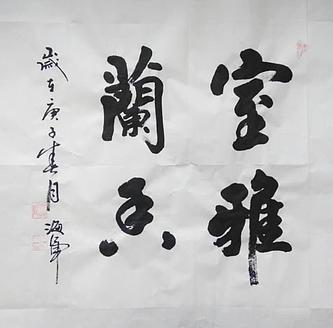 室雅
蘭香
歲在庚子春月
海军